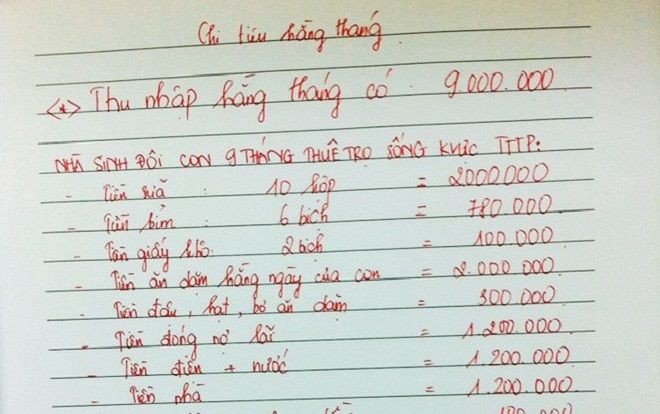 Chi tiêu hằng tháng
<*> Thu nhập hằng tháng có : 9.000.000
NHÀ SINH ĐÔI CON 9 THÁNG THUÊ TRỌ SỐNG KHU TTTP:
- Tiền sữa : 10 hộp = 2000000
- Tiền bỉm : 6 bích = 780.000
- Tiền giấy khô: 2 bích = 100.000
- Tiền ăn dặm hằng ngày của con = 2.000.000
- Tiền dầu, hạt, bơ ăn dặm = 300.000
- Tiền đóng nợ lãi = 1.200.000
- Tiền điện + nước = 1.200.000
- Tiền nhà = 1.200.000